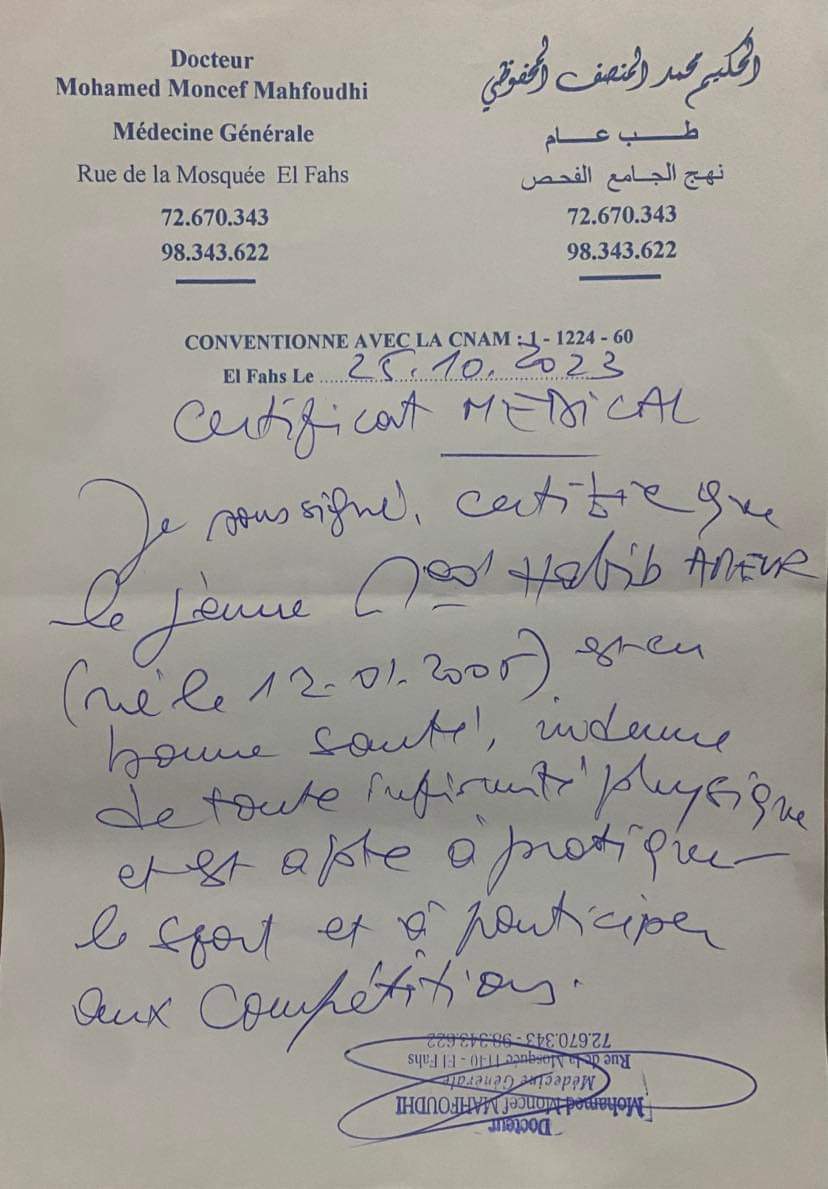 Docteur
Mohamed Moncef Mahfoudhi
Médecine Générale
Rue de la Mosquée El Fahs
72.670.343
98.343.622
الحكيم محمد المنصف المحفوظي
طب عام
نهج الجامع الفحص
72.670.343
98.343.622
CONVENTIONNE AVEC LA CNAM : 1 - 1224 - 60
El Fahs Le 25.10.2023
Certificat MEDICAL
Je soussigné, certifie que
le jeune Med Habib AMEUR
(né le 12-01-2005) est en
bonne santé, indemne
de toute infirmité physique
et est apte à pratiquer
le sport et à participer
aux Compétitions.
Docteur
Mohamed Moncef MAHFOUDHI
Médecine Générale
Rue de la Mosquée 1140 - El Fahs
72.670.343 - 98.343.622